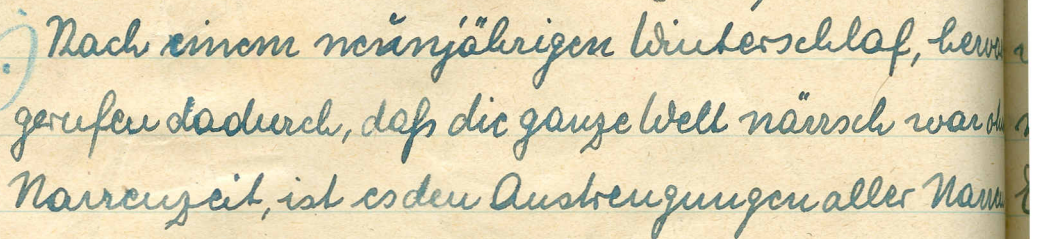 Nach einem neunjährigen Winterschlaf, hervor
gerufen dadurch, daß die ganze Welt närrsch war oh
Narrenzeit, ist es den Anstrengungen aller Narre